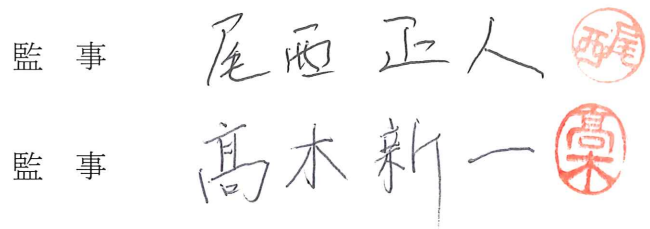 監 事 尾西正人 尾西
監 事 髙木新一 髙木